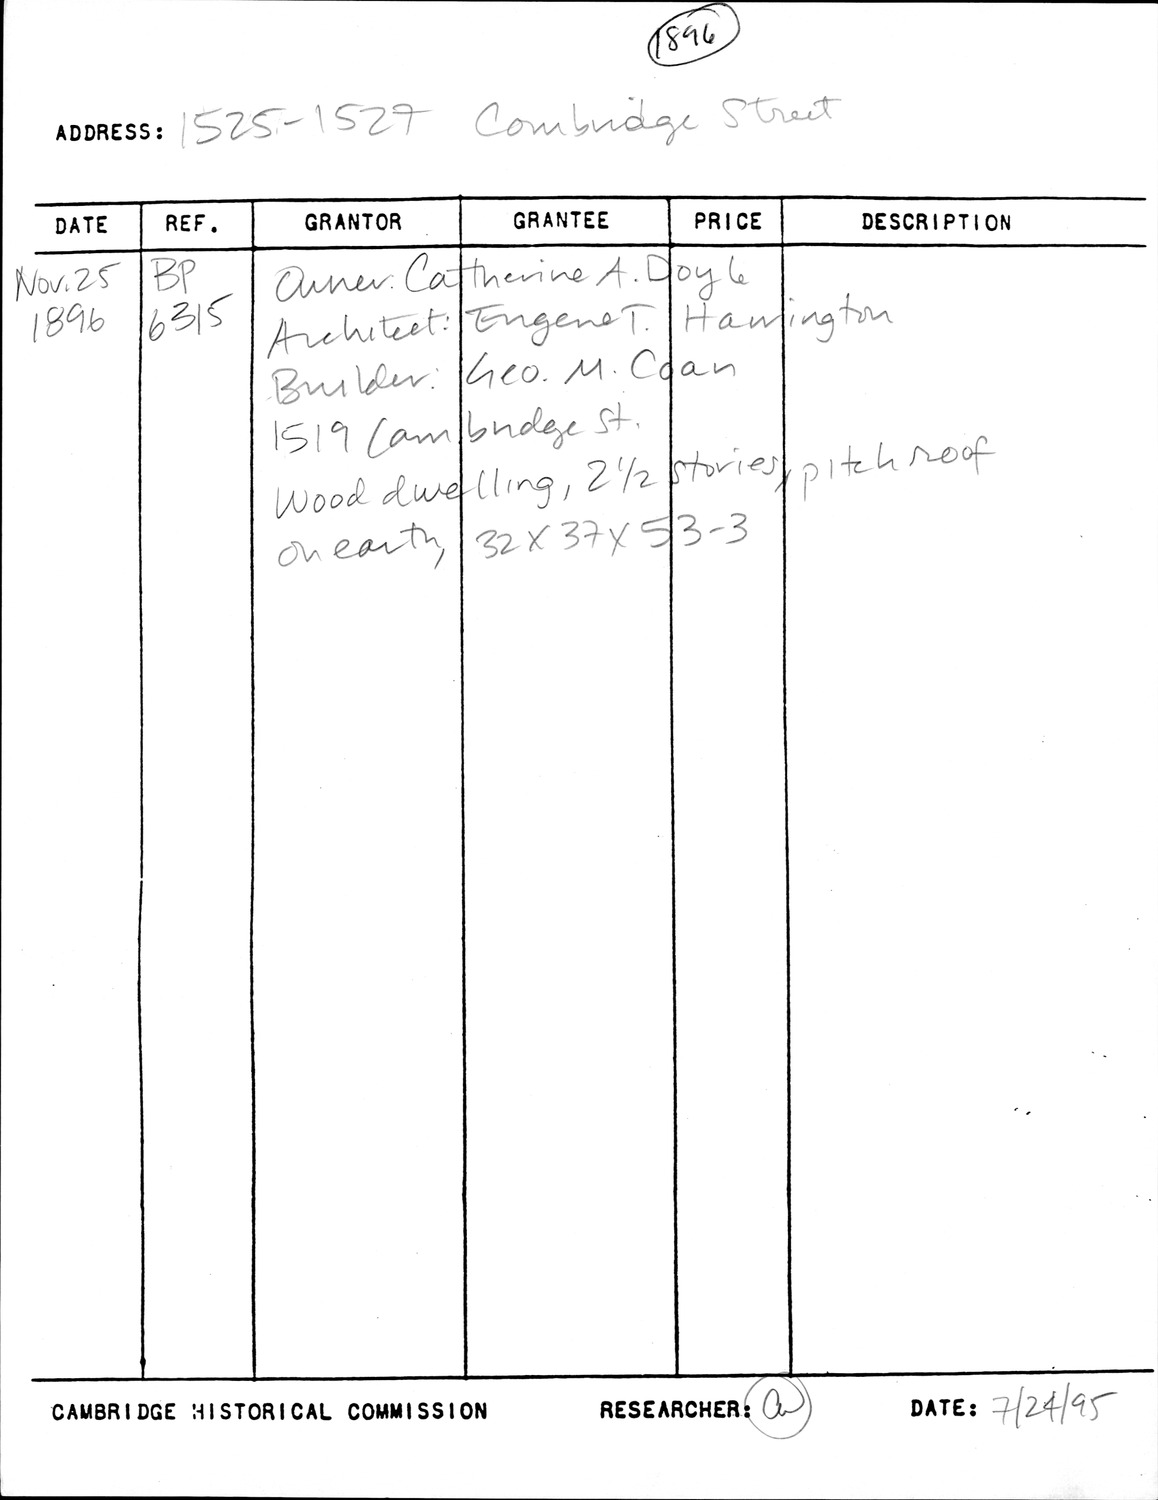 1896
ADDRESS: 1525-1527 Cambridge Street
DATE REF. GRANTOR GRANTEE PRICE DESCRIPTION
Nov. 25 BP Owner: Catherine A. Doyle
1896 6315 Architect: Eugene T. Harrington
Builder: Geo. M. Coan
1519 Cambridge St.
Wood dwelling, 2 1/2 stories, pitch roof
on earth, 32 X 37 X 53-3
CAMBRIDGE HISTORICAL COMMISSION RESEARCHER: DATE: 7/24/95